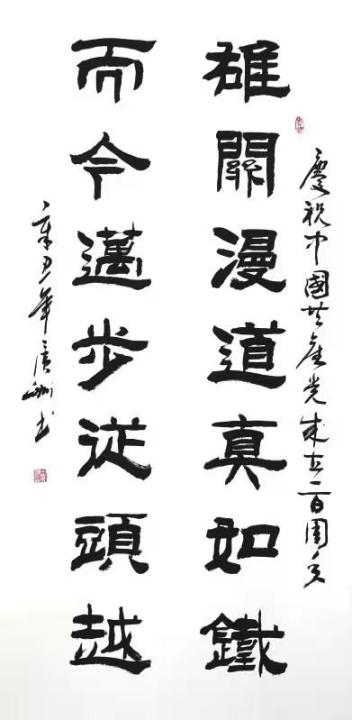 慶祝中國共產党成立一百周年
雄關漫道真如鐵
而今邁步從頭越
辛丑年 書